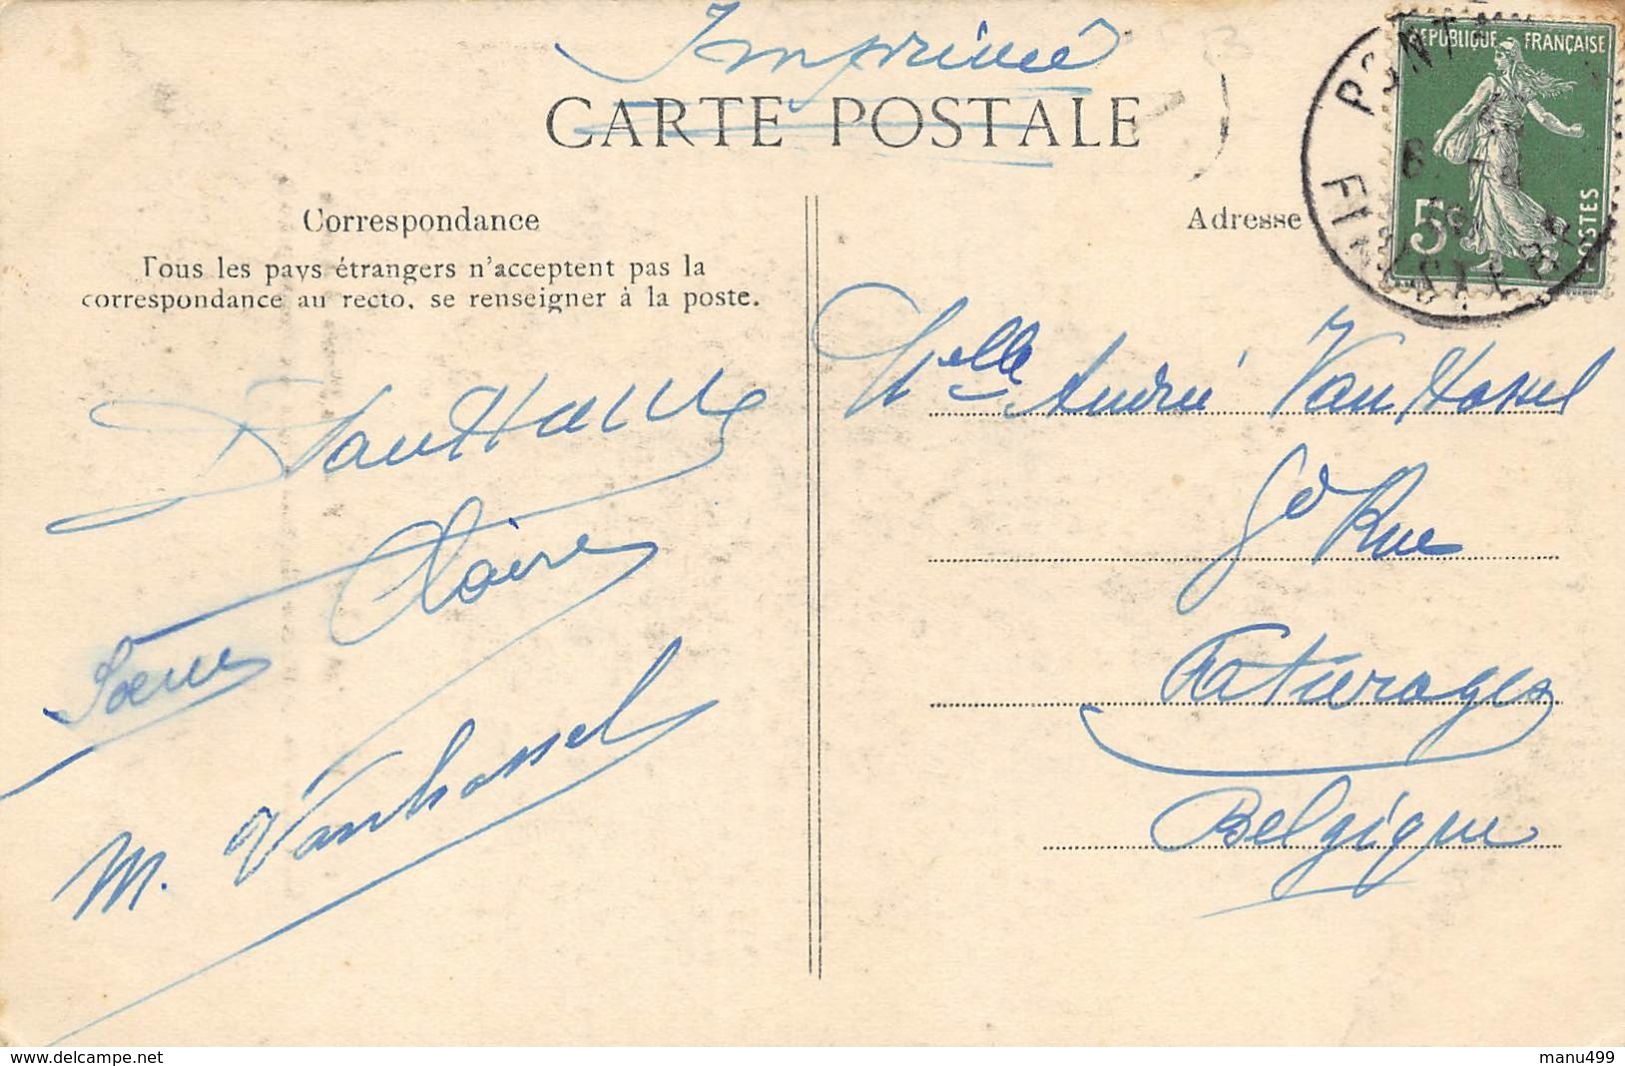 Imprimé
CARTE POSTALE
RÉPUBLIQUE FRANÇAISE
5c
POSTES
PONT
FINISTERE
Correspondance
Tous les pays étrangers n'acceptent pas la
correspondance au recto, se renseigner à la poste.
Adresse
Melle André Van Hassel
Gd Rue
Paturages
Belgique
Claire
M. Vanhassel
www.delcampe.net
manu499